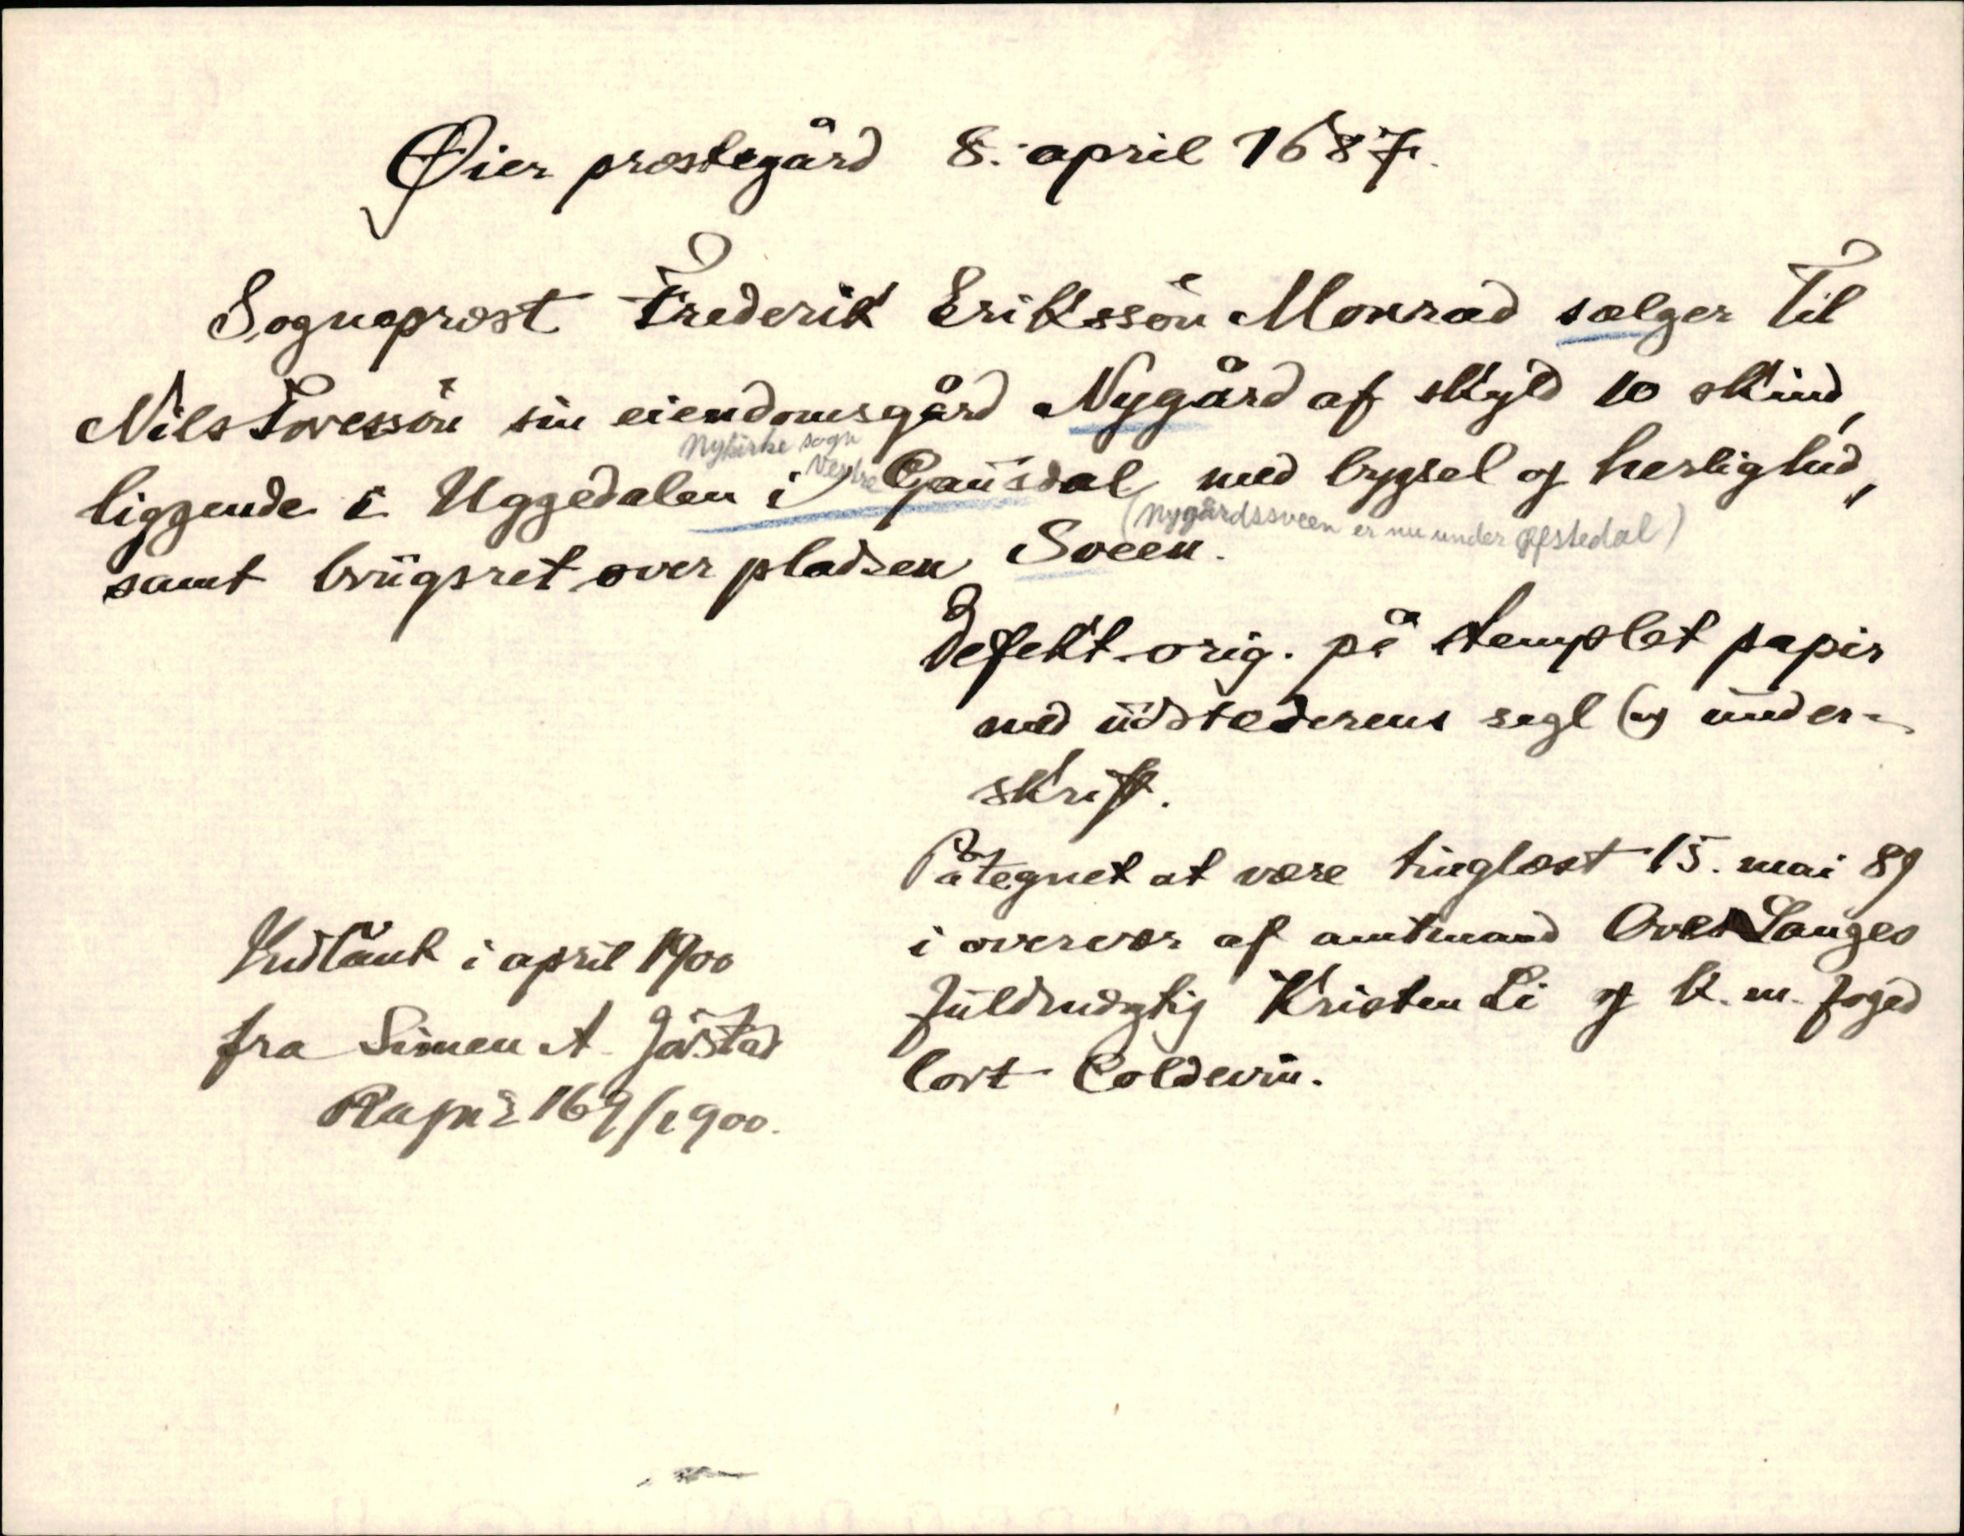 Øier prestegård 8. april 1687.
Sogneprest Frederik Erikssøn Monrad sælger til
Nils Tovessøn sin eiendomsgård Nygård af skyld 10 skind,
Nykirke sogn
Vestre
liggende i Uggedalen i Gausdal med bygsel og herlighed,
(Nygårdssveen er nu under Ofstedal)
samt brugsret over pladsen Sveen.
Defekt orig. på stemplet papir
med udstederens segl (og under-
skrift.
Påtegnet at være tinglæst 15. mai 89
i overvær af amtmand Over Langes
fuldmægtig Kristen Li og k. m. foged
Cort Coldevin.
Indlånt i april 1900
fra Simen A. Jåstad
Rapnr 169/1900.